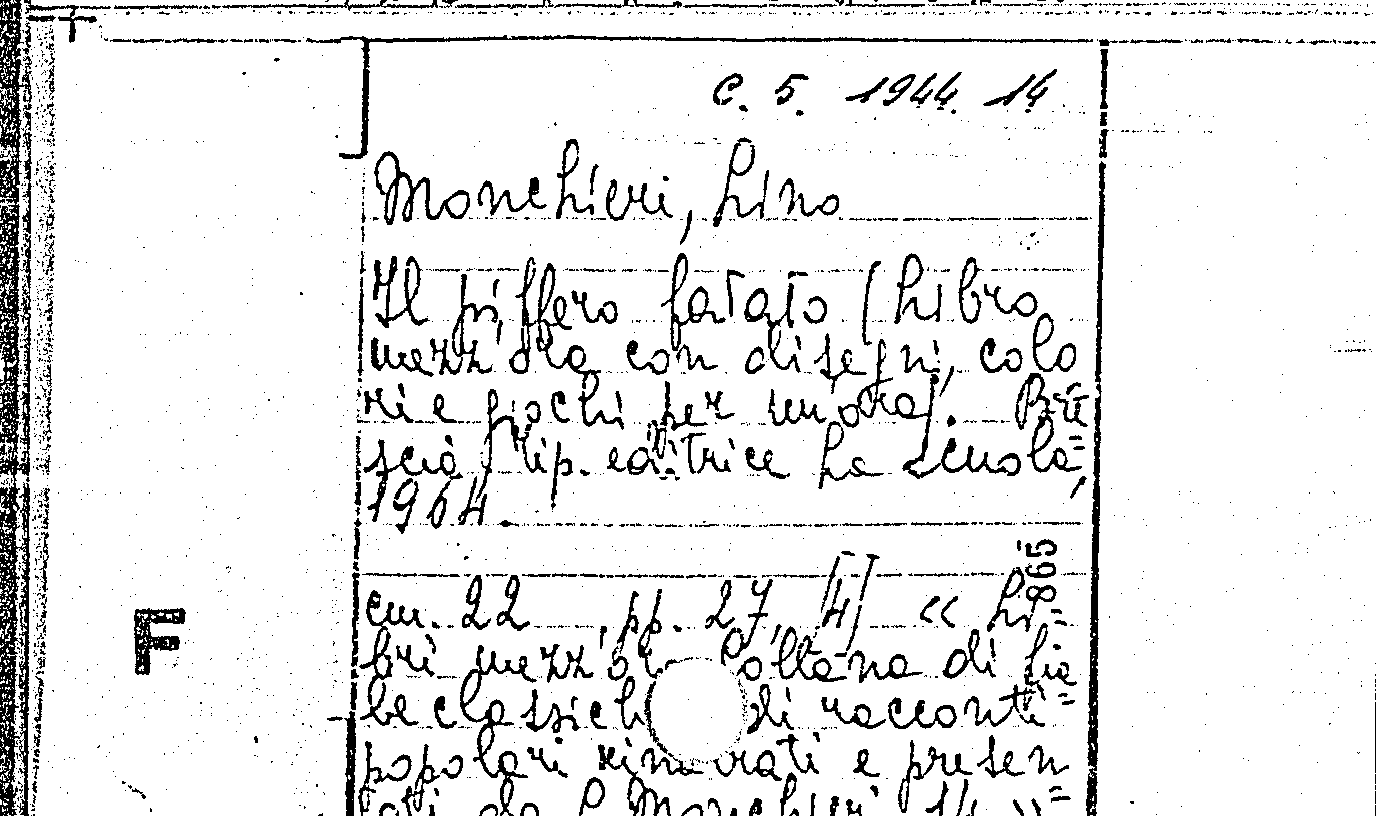 C. 5. 1944. 14
Monchieri, Lino
Il piffero fatato (Libro
mezz'ora con disegni, colo
ri e giochi per un'ora). Bre
scia, Tip. editrice La Scuola,
1964.
865
cm. 22, pp. 27, [4] << Li=
bri mezz'o Collana di fia
be classich di racconti
popolari rin ati e presen
tati da L. Monchieri, 14 >>
F